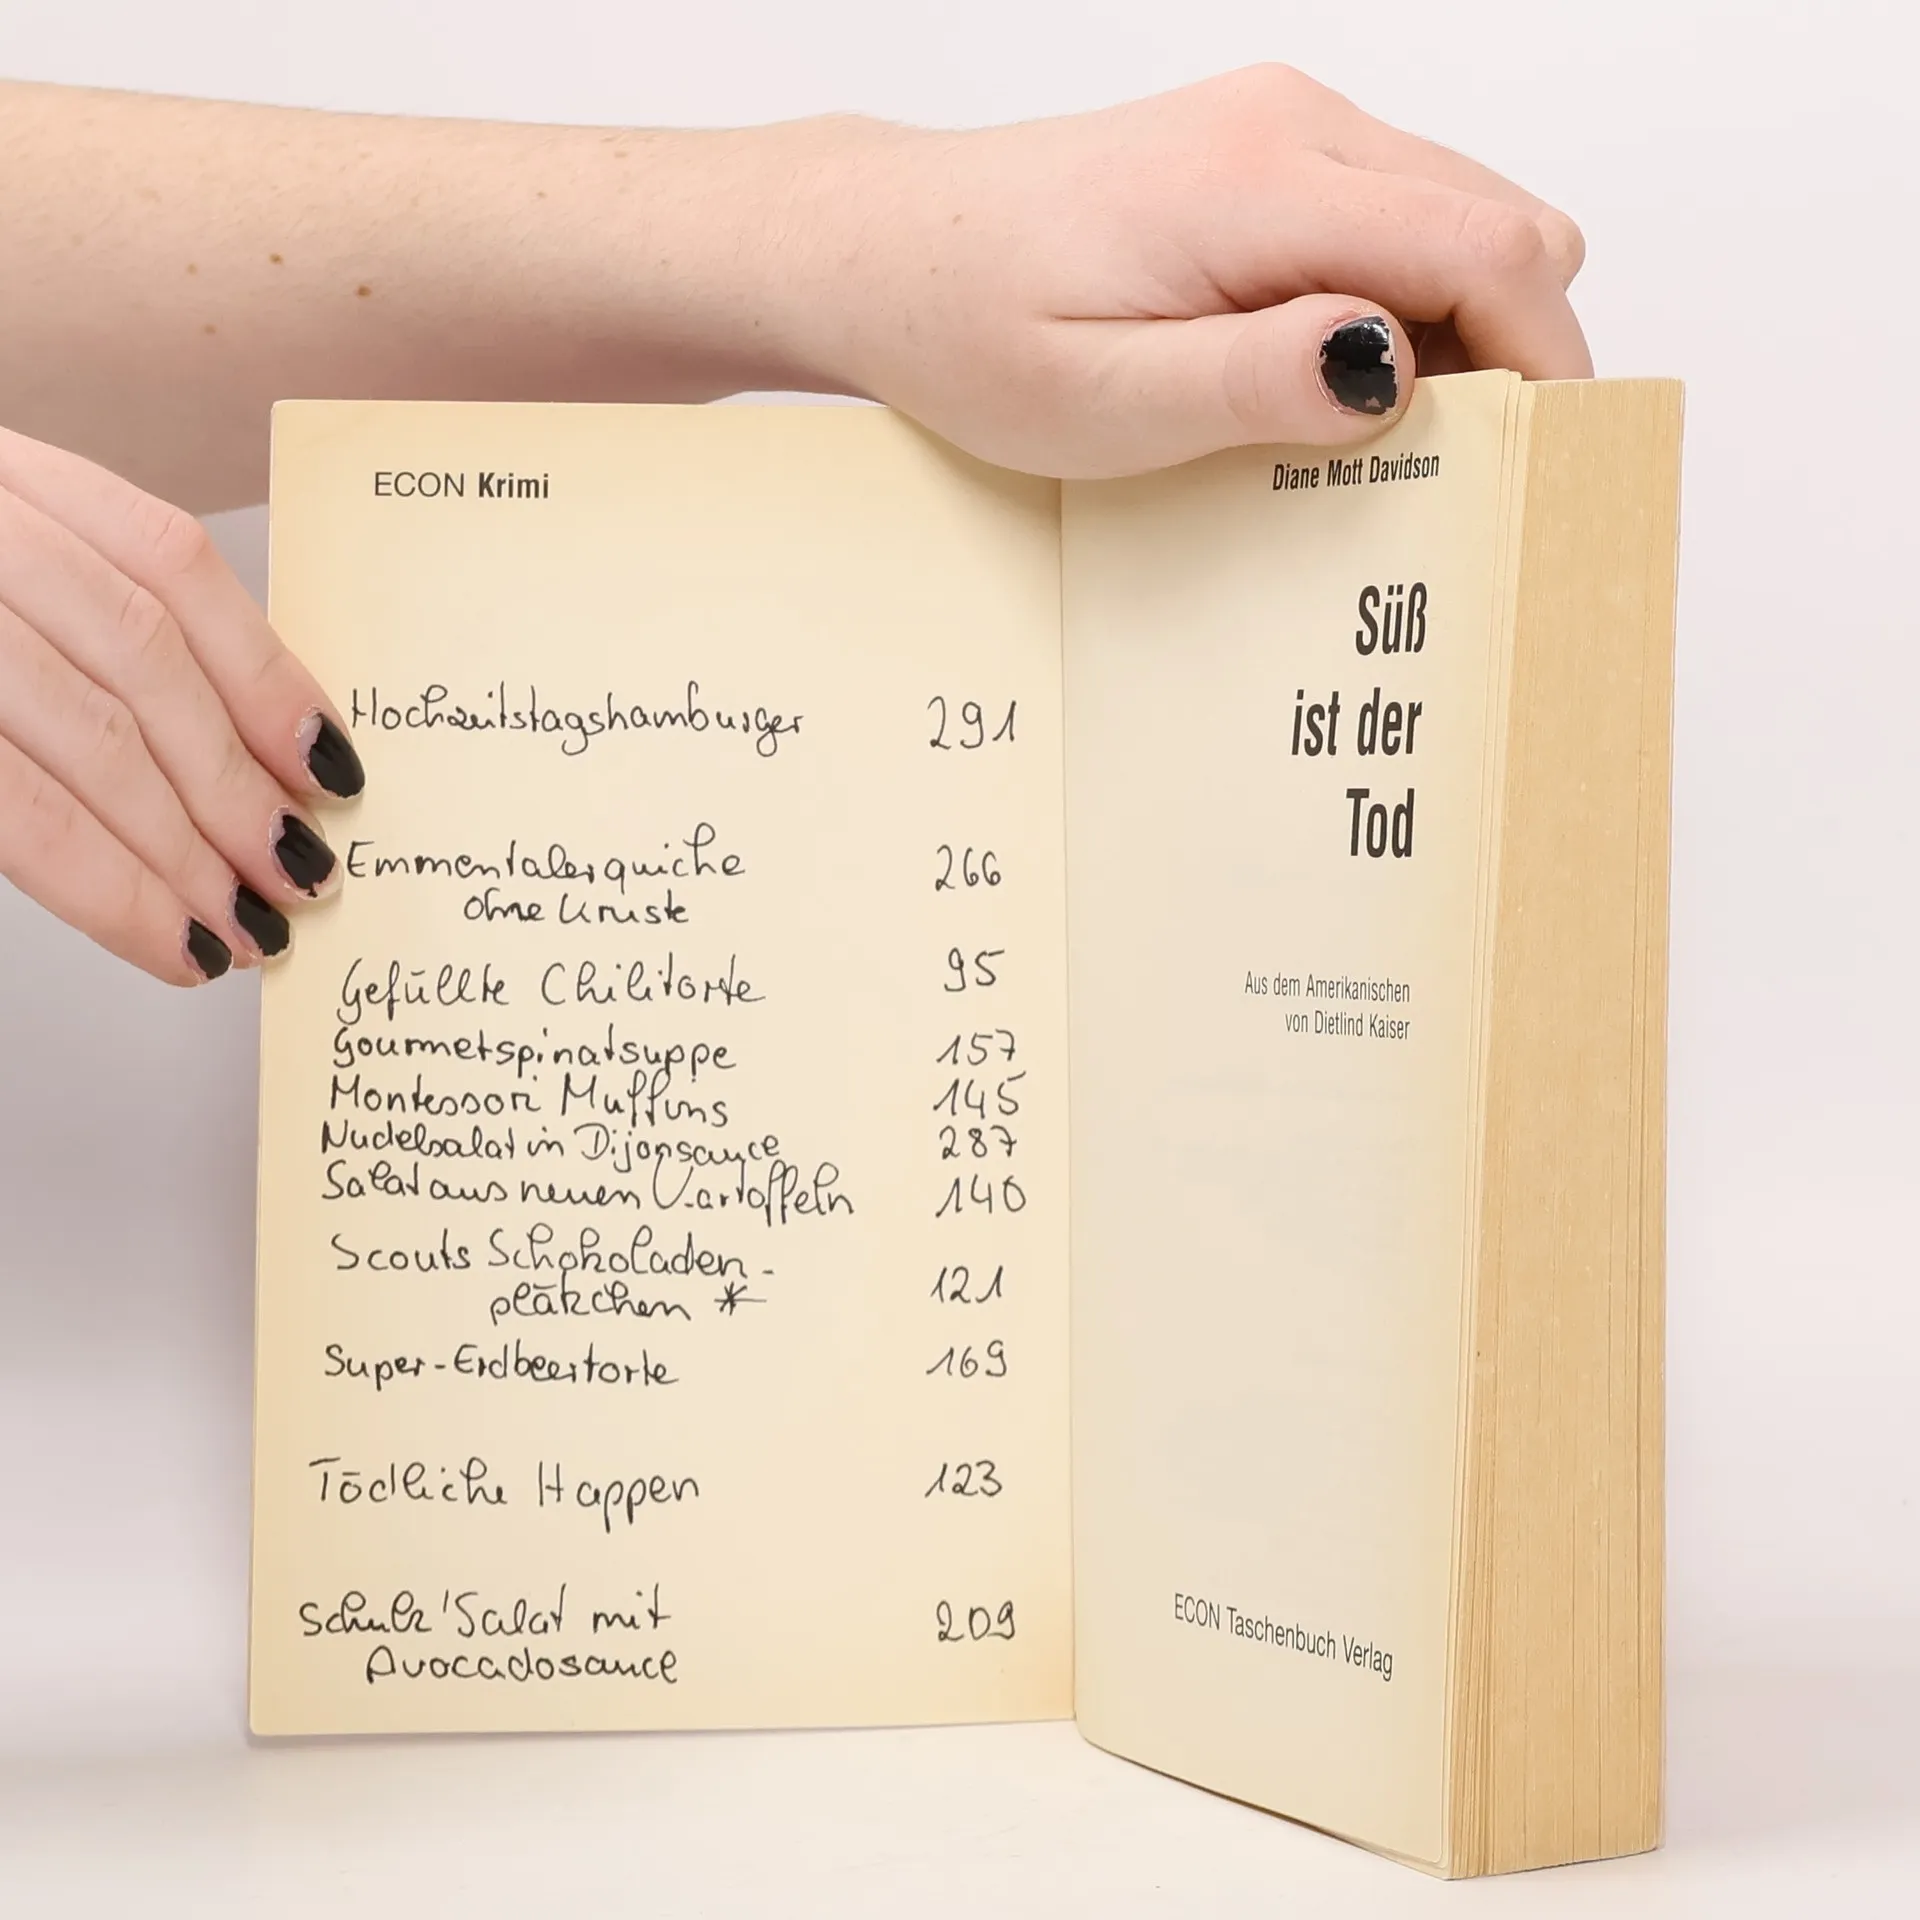 ECON Krimi
Hochzeitstagshamburger 291
Emmentalerquiche 266
ohne Kruste
Gefüllte Chilitorte 95
Gourmetspinatsuppe 157
Montessori Muffins 145
Nudelsalat in Dijonsauce 287
Salat aus neuen Kartoffeln 140
Scouts Schokoladen-
plätzchen * 121
Super-Erdbeertorte 169
Tödliche Happen 123
Schulz' Salat mit 209
Avocadosauce
Diane Mott Davidson
Süß
ist der
Tod
Aus dem Amerikanischen
von Dietlind Kaiser
ECON Taschenbuch Verlag